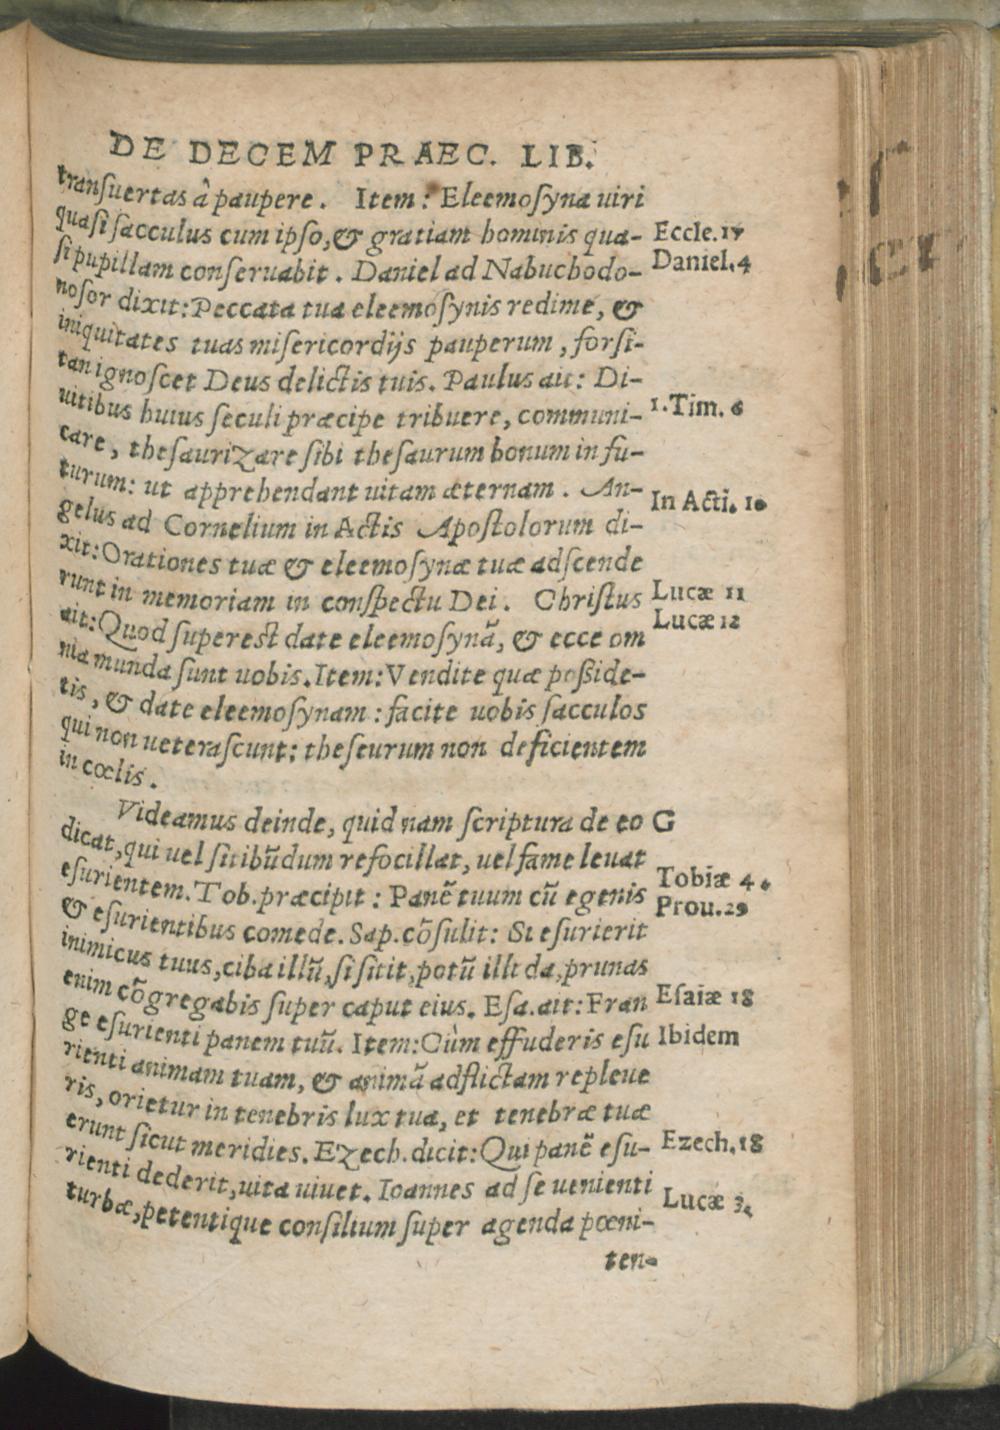 DE DECEM PRAEC. LIB.
transuertas â paupere. Item: Eleemosyna uiri
quasi sacculus cum ipso, & gratiam hominis qua-
Eccle. 17
si pupillam conseruabit. Daniel ad Nabuchodo-
Daniel. 4
nosor dixit: Peccata tua eleemosynis redime, &
iniquitates tuas misericordijs pauperum, forsi-
tan ignoscet Deus delictis tuis. Paulus ait: Di-
uitibus huius seculi præcipe tribuere, communi-
1. Tim. 6
care, thesaurizare sibi thesaurum bonum in fu-
turum: ut apprehendant uitam æternam. An-
In Acti. 10
gelus ad Cornelium in Actis Apostolorum di-
xit: Orationes tuæ & eleemosynæ tuæ adscende
runt in memoriam in conspectu Dei. Christus
Lucæ 11
ait: Quod superest date eleemosynã, & ecce om
Lucæ 12
nia munda sunt uobis. Item: Vendite quæ posside-
tis, & date eleemosynam: facite uobis sacculos
qui non ueterascunt: theseurum non deficientem
in cœlis.
Videamus deinde, quid nam scriptura de eo
G
dicat, qui uel sitibũdum refocillat, uel fame leuat
esurientem. Tob. præcipit: Panẽ tuum cũ egenis
Tobiæ 4.
& esurientibus comede. Sap. cõsulit: Si esurierit
Prou. 29
inimicus tuus, ciba illũ, si sitit, potũ illi da, prunas
enim cõgregabis super caput eius. Esa. ait: Fran
Esaiæ 18
ge esurienti panem tuũ. Item: Cùm effuderis esu
Ibidem
rienti animam tuam, & animã adflictam repleue
ris, orietur in tenebris lux tua, et tenebræ tuæ
erunt sicut meridies. Ezech. dicit: Qui panẽ esu-
Ezech. 18
rienti dederit, uita uiuet. Ioannes ad se uenienti
turbæ, petentique consilium super agenda pœni-
Lucæ 3.
ten-